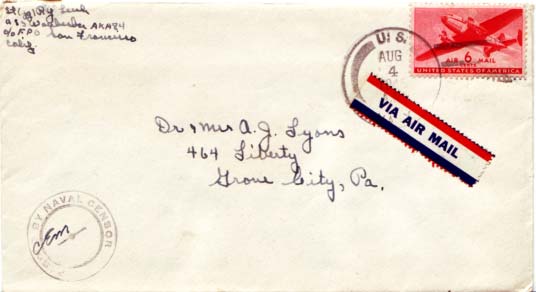 USS Wanderber AKA84
c/o FPO San Francisco
Calif.
U.S.
AUG
4
AIR 6 MAIL
CENTS
UNITED STATES OF AMERICA
VIA AIR MAIL
Dr & Mrs A. J. Lyons
464 Liberty
Grove City, Pa.
BY NAVAL CENSOR